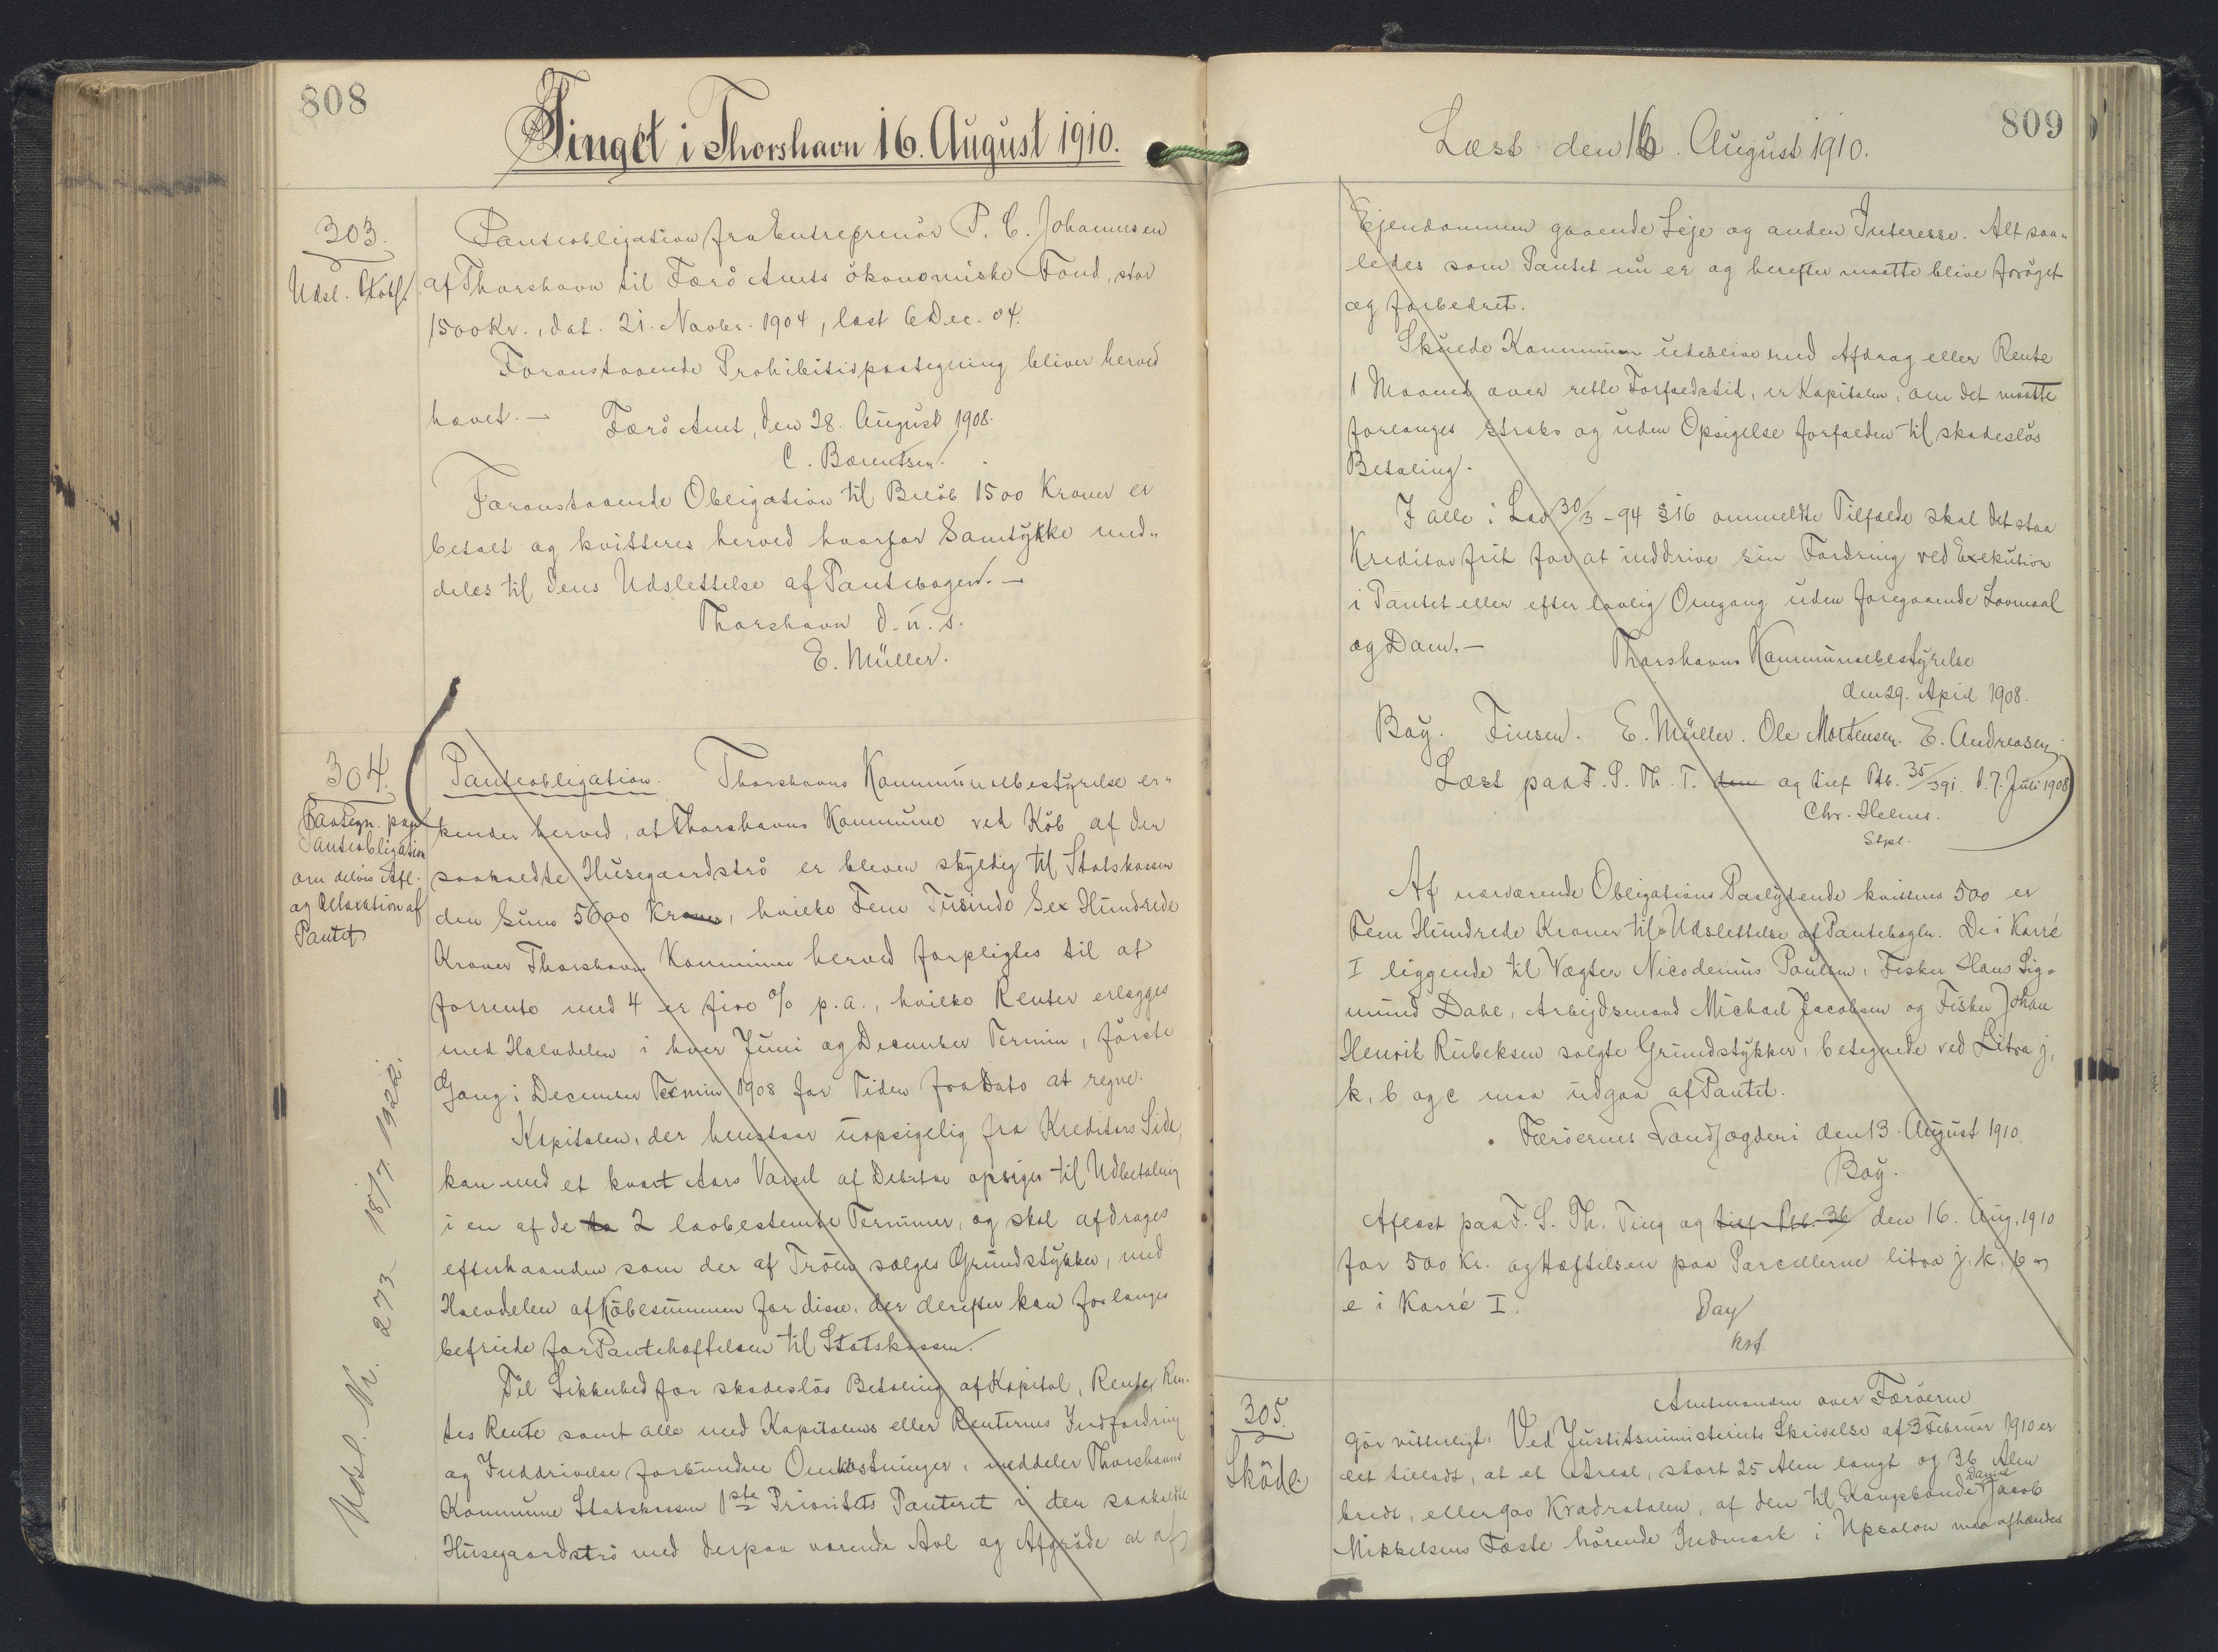 808
Tinget i Thorshavn 16. August 1910.
303.
Udsl. Obl.
Panteobligation fra Entreprenør P. C. Johannesen
af Thorshavn til Færø Amts økonomiske Fond, stor
1500 Kr., dat. 21. Novbr. 1904, læst 6 Dec. 04.
Foranstaaende Prohibitivpaategning bliver herved
hævet. — Færø Amt, den 28. August 1908.
C. Bærentsen.
Foranstaaende Obligation til Beløb 1500 Kroner er
betalt og kvitteres herved hvorfor Samtykke med„
deles til dens Udslettelse af Pantebogen. —
Thorshavn d. u. s.
E. Müller.
304.
Paategn. paa
Panteobligation
om delvis Afl.
og Relaxation af
Pantet
Udsl. Nr. 273 18/7 1922.
Panteobligation. Thorshavns Kommunalbestyrelse er„
kender herved, at Thorshavns Kommune ved Køb af den
saakaldte Husegaardstrø er bleven skyldig til Statskassen
den Sum 5600 Kroner, hvilke Fem Tusinde Sex Hundrede
Kroner Thorshavns Kommune herved forpligtes til at
forrente med 4 er fire % p. a., hvilke Renter erlægges
med Halvdelen i hver Juni og December Termin, første
Gang i December Termin 1908 for Tiden fra Dato at regne.
Kapitalen, der henstaar uopsigelig fra Kreditors Side,
kan med et kvart Aars Varsel af Debitor opsiges til Udbetaling
i en af de to 2 lovbestemte Terminer, og skal afdrages
efterhaanden som der af Trøen sælges Grundstykker, med
Halvdelen af Købesummen for disse, der derefter kan forlanges
befriede for Pantehæftelsen til Statskassen.
Til Sikkerhed for skadesløs Betaling af Kapital, Renter, Ren-
tes Rente samt alle med Kapitalens eller Renternes Indfordring
og Inddrivelse forbundne Omkostninger, meddeler Thorshavns
Kommune Statskassen 1ste Prioritets Panteret i den saakaldte
Husegaardstrø med derpaa værende Avl og Afgrøde al af
809
Læst den 16. August 1910.
Ejendommen gaaende Leje og anden Interesse. Alt saa„
ledes som Pantet nu er og herefter maatte blive forøget
og forbedret.
Skulde Kommunen udeblive med Afdrag eller Rente
1 Maaned over rette Forfaldstid, er Kapitalen, om det maatte
forlanges straks og uden Opsigelse forfalden til skadesløs
Betaling.
I alle i Lov 30/3 - 94 § 16 ommeldte Tilfælde skal det staa
Kreditor frit for at inddrive sin Fordring ved Exekution
i Pantet eller efter lovlig Omgang uden foregaaende Lovmaal
og Dom. —
Thorshavns Kommunalbestyrelse
den 29. April 1908.
Bay. Finsen. E. Müller. Ole Mortensen. E. Andreasen
Læst paa F. S. Th. T. den og tilf Ptb. 35/391. d. 7. Juli 1908
Chr. Helms.
Stpl.
Af nærværende Obligations Paalydende kvitteres 500 er
Fem Hundrede Kroner til Udslettelse af Pantebogen. De i Karré
I liggende til Vægter Nicodemus Poulsen, Fisker Hans Sig„
mund Dahl, Arbejdsmand Michael Jacobsen og Fisker Johan
Henrik Rubeksen solgte Grundstykker, betegnede ved Litra j,
k, b og c maa udgaa af Pantet.
Færøernes Landfogderi den 13. August 1910.
Bay.
Aflæst paa F. S. Th. Ting og tilf Ptb. 36 den 16. Aug. 1910
for 500 Kr. og Hæftelsen paa Parcellerne litra j, k, b og
c i Karré I.
Bay
kst
305.
Skøde.
Amtmanden over Færøerne
Gør vitterligt: Ved Justitsministeriets Skrivelse af 3 Februar 1910 er
det tilladt, at et Areal, stort 25 Alen langt og 36 Alen
bredt, eller 900 Kvadratalen, af den til Kongsbonde Daniel Jacob
Mikkelsens Fæste hørende Indmark i Upsalon maa afhændes